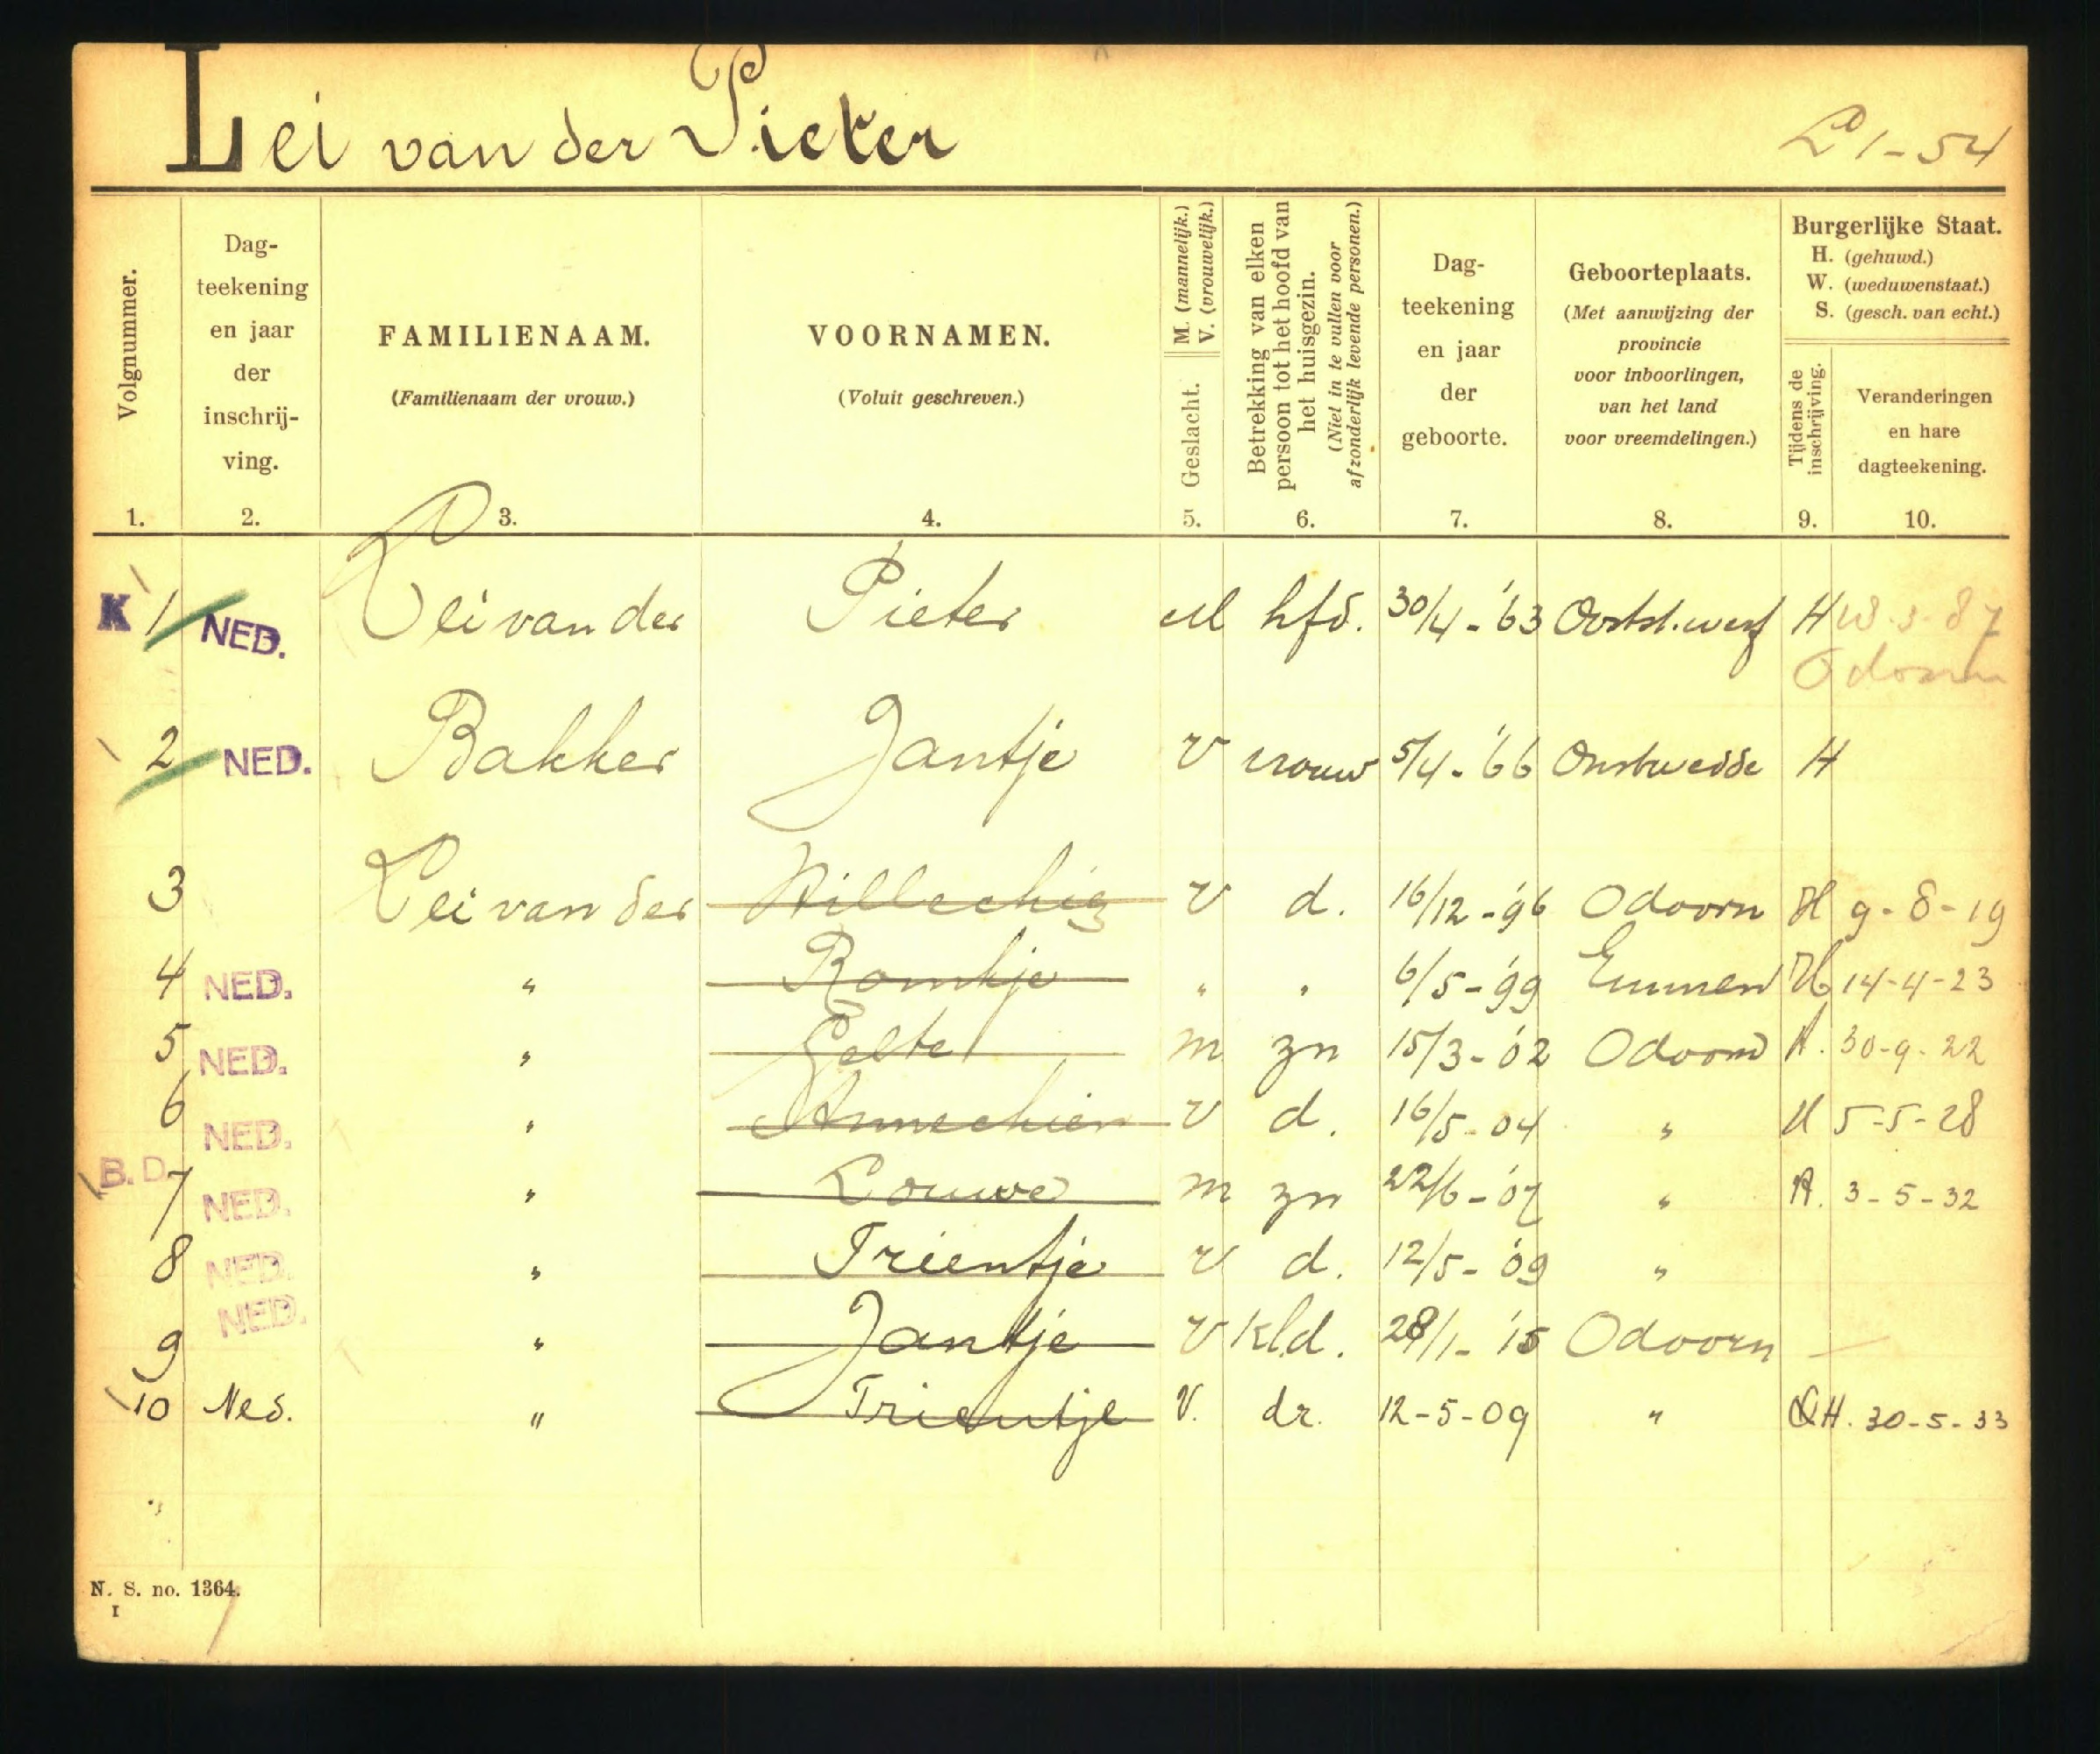 Lei van der Pieter
L 1-54
Volgnummer.
Dag-
teekening
en jaar
der
inschrij-
ving.
FAMILIENAAM.
(Familienaam der vrouw.)
VOORNAMEN.
(Voluit geschreven.)
Geslacht.
M. (mannelijk.)
V. (vrouwelijk.)
Betrekking van elken
persoon tot het hoofd van
het huisgezin.
(Niet in te vullen voor
afzonderlijk levende personen.)
Dag-
teekening
en jaar
der
geboorte.
Geboorteplaats.
(Met aanwijzing der
provincie
voor inboorlingen,
van het land
voor vreemdelingen.)
Burgerlijke Staat.
H. (gehuwd.)
W. (weduwenstaat.)
S. (gesch. van echt.)
Tijdens de
inschrijving.
Veranderingen
en hare
dagteekening.
1. 2. 3. 4. 5. 6. 7. 8. 9. 10.
K 1 NED. Lei van der Pieter M hfd. 30/4-'63 Oostst.werf H
Odoorn
2 NED. Bakker Jantje V vrouw 5/4-'66 Onstwedde H
3 Lei van der Willechig V d. 16/12-'96 Odoorn H 9-8-19
4 NED. " Romkje " " 6/5-'99 Emmen H 14-4-23
5 NED. " Eelte m zn 15/3-'02 Odoorn H. 30-9-22
6 NED. " Annechien V d. 16/5-04 " H 5-5-28
B.D. 7 NED. " Louwe m zn 22/6-'07 " H. 3-5-32
8 NED. " Trientje V d. 12/5-'09 "
9 NED. " Jantje V kl.d. 28/1-'15 Odoorn —
10 Ned. " Trientje V. dr. 12-5-09 " H. 30-5-33
N. S. no. 1364.
I